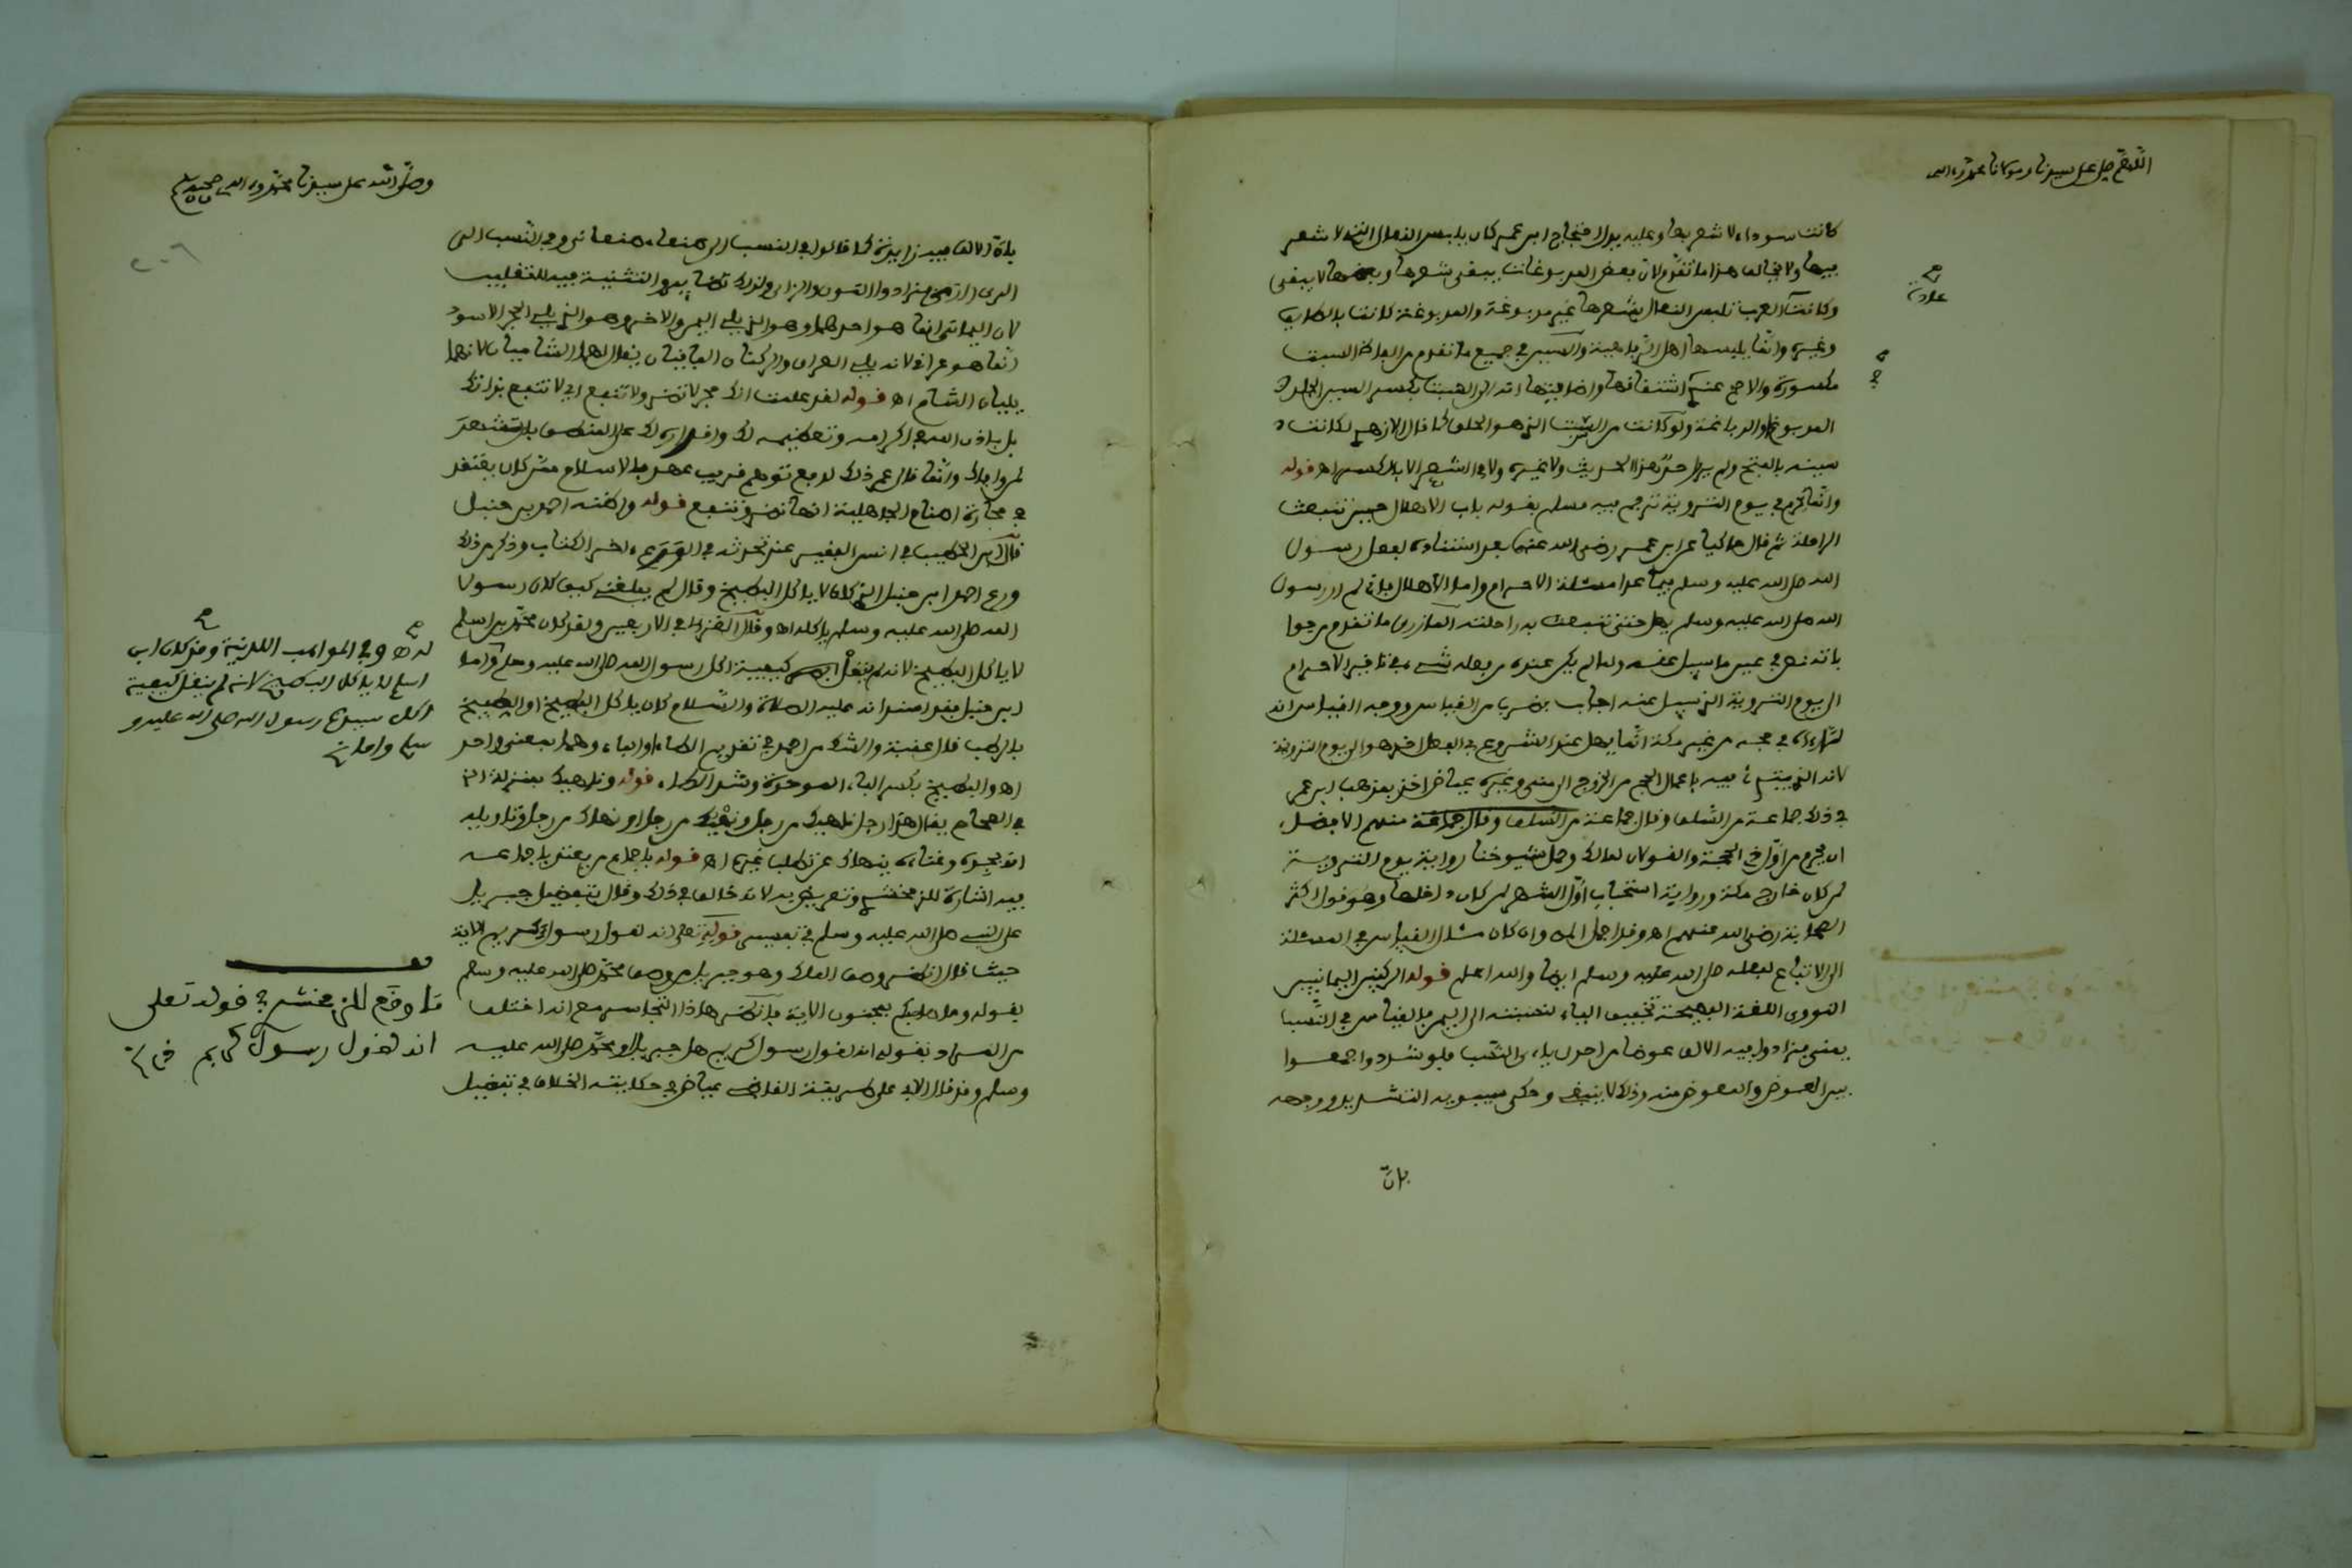 اللهم صل على سيدنا ومولانا محمد وءاله
كانت سوداء لا شعر بها وعليه يدل احتجاج ابن عمر كان يلبس النعال التي لا شعر
فيها ولا يخالف هذا ما تقدم لان بعض المدبوغات يبقى شعرها وبعضها لا يبقى
وكانت العرب تلبس النعال بشعرها غير مدبوغة والمدبوغة كانت بالطايف
وغيره وانما يلبسها اهل الرفاهية والسين في جميع ما تقدم من الفاظ السبت
مكسورة والاصح عندي اشتقاقها واضافتها انه الى السبت بكسر السين الجلد
المدبوغ او الدباغة ولو كانت من السبت الذي هو الحلق كما قال الازهري لكانت
سبته بالفتح ولم يرو احد هذا الحديث ولا غيره ولا في الشعر الا بالكسر اه قوله
وانما يحرم في يوم التروية ترجم فيه مسلم بقوله باب الاهلال حين تنبعث
الراحلة ثم قال حاكيا عن ابن عمر رضي الله عنهما بعد استناده لفعل رسول
الله صلى الله عليه وسلم فيما عدا مسئلة الاحرام واما الاهلال فاني لم ار رسول
الله صلى الله عليه وسلم يهل حتى تنبعث به راحلته المازري ما تقدم من جوا
باته نص في عين ما سيل عنه ولما لم يكن عنده من فعله شيء في تاخير الاحرام
الى يوم التروية الذي سيل عنه اجاب بضرب من القياس ووجه القياس انه
لما رءاه في حجه من غير مكة انما يهل عند الشروع في الفعل اخر هو الى يوم التروية
لانه الذي يبتدئ فيه باعمال الحج من الخروج الى منى وغيره عياض اخذ بمذهب ابن عمر
في ذلك جماعة من السلف وقال جماعة من السلف وقال جماعة منهم الافضل
ان يحرم من اول ذي الحجة والقولان لمالك وحمل شيوخنا رواية يوم التروية
لمن كان خارج مكة ورواية استحباب اول الشهر لمن كان داخلها وهو قول اكثر
الصحابة رضي الله عنهم اه وقد اجمل المه وان كان مثل القياس في المسئلة
الى الاتباع لفعله صلى الله عليه وسلم ايضا والله اعلم قوله الركنين اليمانيين
النووي اللغة الفصيحة تخفيف الياء لنسبته الى اليمن فالقياس في النسب
يمني فزادوا فيه الالف عوضا من احدى ياءي النسب فلو شددوا جمعوا
بين العوض والمعوض منه وذلك لا ينبغي وحكى سيبويه التشديد ووجهه
بان
وصلى الله على سيدنا محمد وءاله وصحبه وسلم
٢٠٦
بان الالف فيه زايدة كما قالوا في النسب الى صنعاء صنعاني وفي النسب الى
الري رازي فزادوا النون والزاي ولذلك قال فيه والتثنية فيه للتغليب
لان اليماني انما هو احدهما وهو الذي يلي اليمن والاخر وهو الذي يلي الحجر الاسود
انما هو عراقي لانه يلي العراق والركنان الباقيان يقال لهما الشاميان لانهما
يليان الشام اه قوله لقد علمت انك حجر لا تضر ولا تنفع اي لا تنفع بذاتك
بل باذن الله في اكرامه وتعظيمه لك واقداره لك على النطق بان تشهد
لمن وافاك وانما قال عمر ذلك لدفع توهم قريب عهد بالاسلام ممن كان يعتقد
في حجارة اصنام الجاهلية انها تضر وتنفع قوله واظنه احمد بن حنبل
قال ابن الخطيب في انس الفقير عند تحدثه في الورع ءاخر الكتاب وذكر من ذلك
ورع احمد ابن حنبل الذي كان لا ياكل البطيخ وقال لم يبلغني كيف كان رسول
الله صلى الله عليه وسلم ياكله اه وقال الغزالي في الاربعين ولقد كان محمد بن اسلم
لا ياكل البطيخ لانه لم ينقل اليه كيفية اكل رسول الله صلى الله عليه وسلم واما
ابن حنبل فقد اسند انه عليه الصلاة والسلام كان ياكل البطيخ او الطبيخ
بالرطب قال عقبة والشك من احمد في تقديم الطاء او الباء وهما بمعنى واحد
اه والبطيخ بكسر الباء الموحدة وشد الطاء قوله وناهيك بمنزلة الخ
في الصحاح يقال هذا رجل ناهيك من رجل ونهيك من رجل او نهاك من رجل وتاويله
انه بجده وغنائه ينهاك عن تطلب غيره اه قوله باجماع من يعتد باجماعه
فيه اشارة للزمخشري وتعريض به لانه خالف في ذلك وقال بتفضيل جبريل
على النبي صلى الله عليه وسلم في تفسير قوله تعلى انه لقول رسول كريم الاية
حيث قال انظر وصف الملك وهو جبريل من وصف محمد صلى الله عليه وسلم
بقوله وما صاحبكم بمجنون الاية فانظر هاذا التجاسر مع انه اختلف
من المراد بقوله انه لقول رسول كريم هل جبريل او محمد صلى الله عليه
وسلم وقد قال الابي على طريقة القاضي عياض في حكايته الخلاف في تفضيل
له صح وفي المواهب اللدنية وقد كان ابن
اسلم لا ياكل البطيخ لانه لم ينقل كيفية
اكل سيدنا رسول الله صلى الله عليه و
سلم واما
ما وقع للزمخشري في قوله تعلى
انه لقول رسول كريم